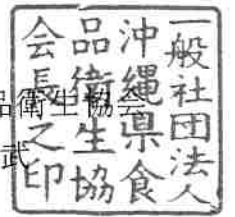 一般社団法人
沖縄県食
品衛生協
会長之印
品衛生協会
武